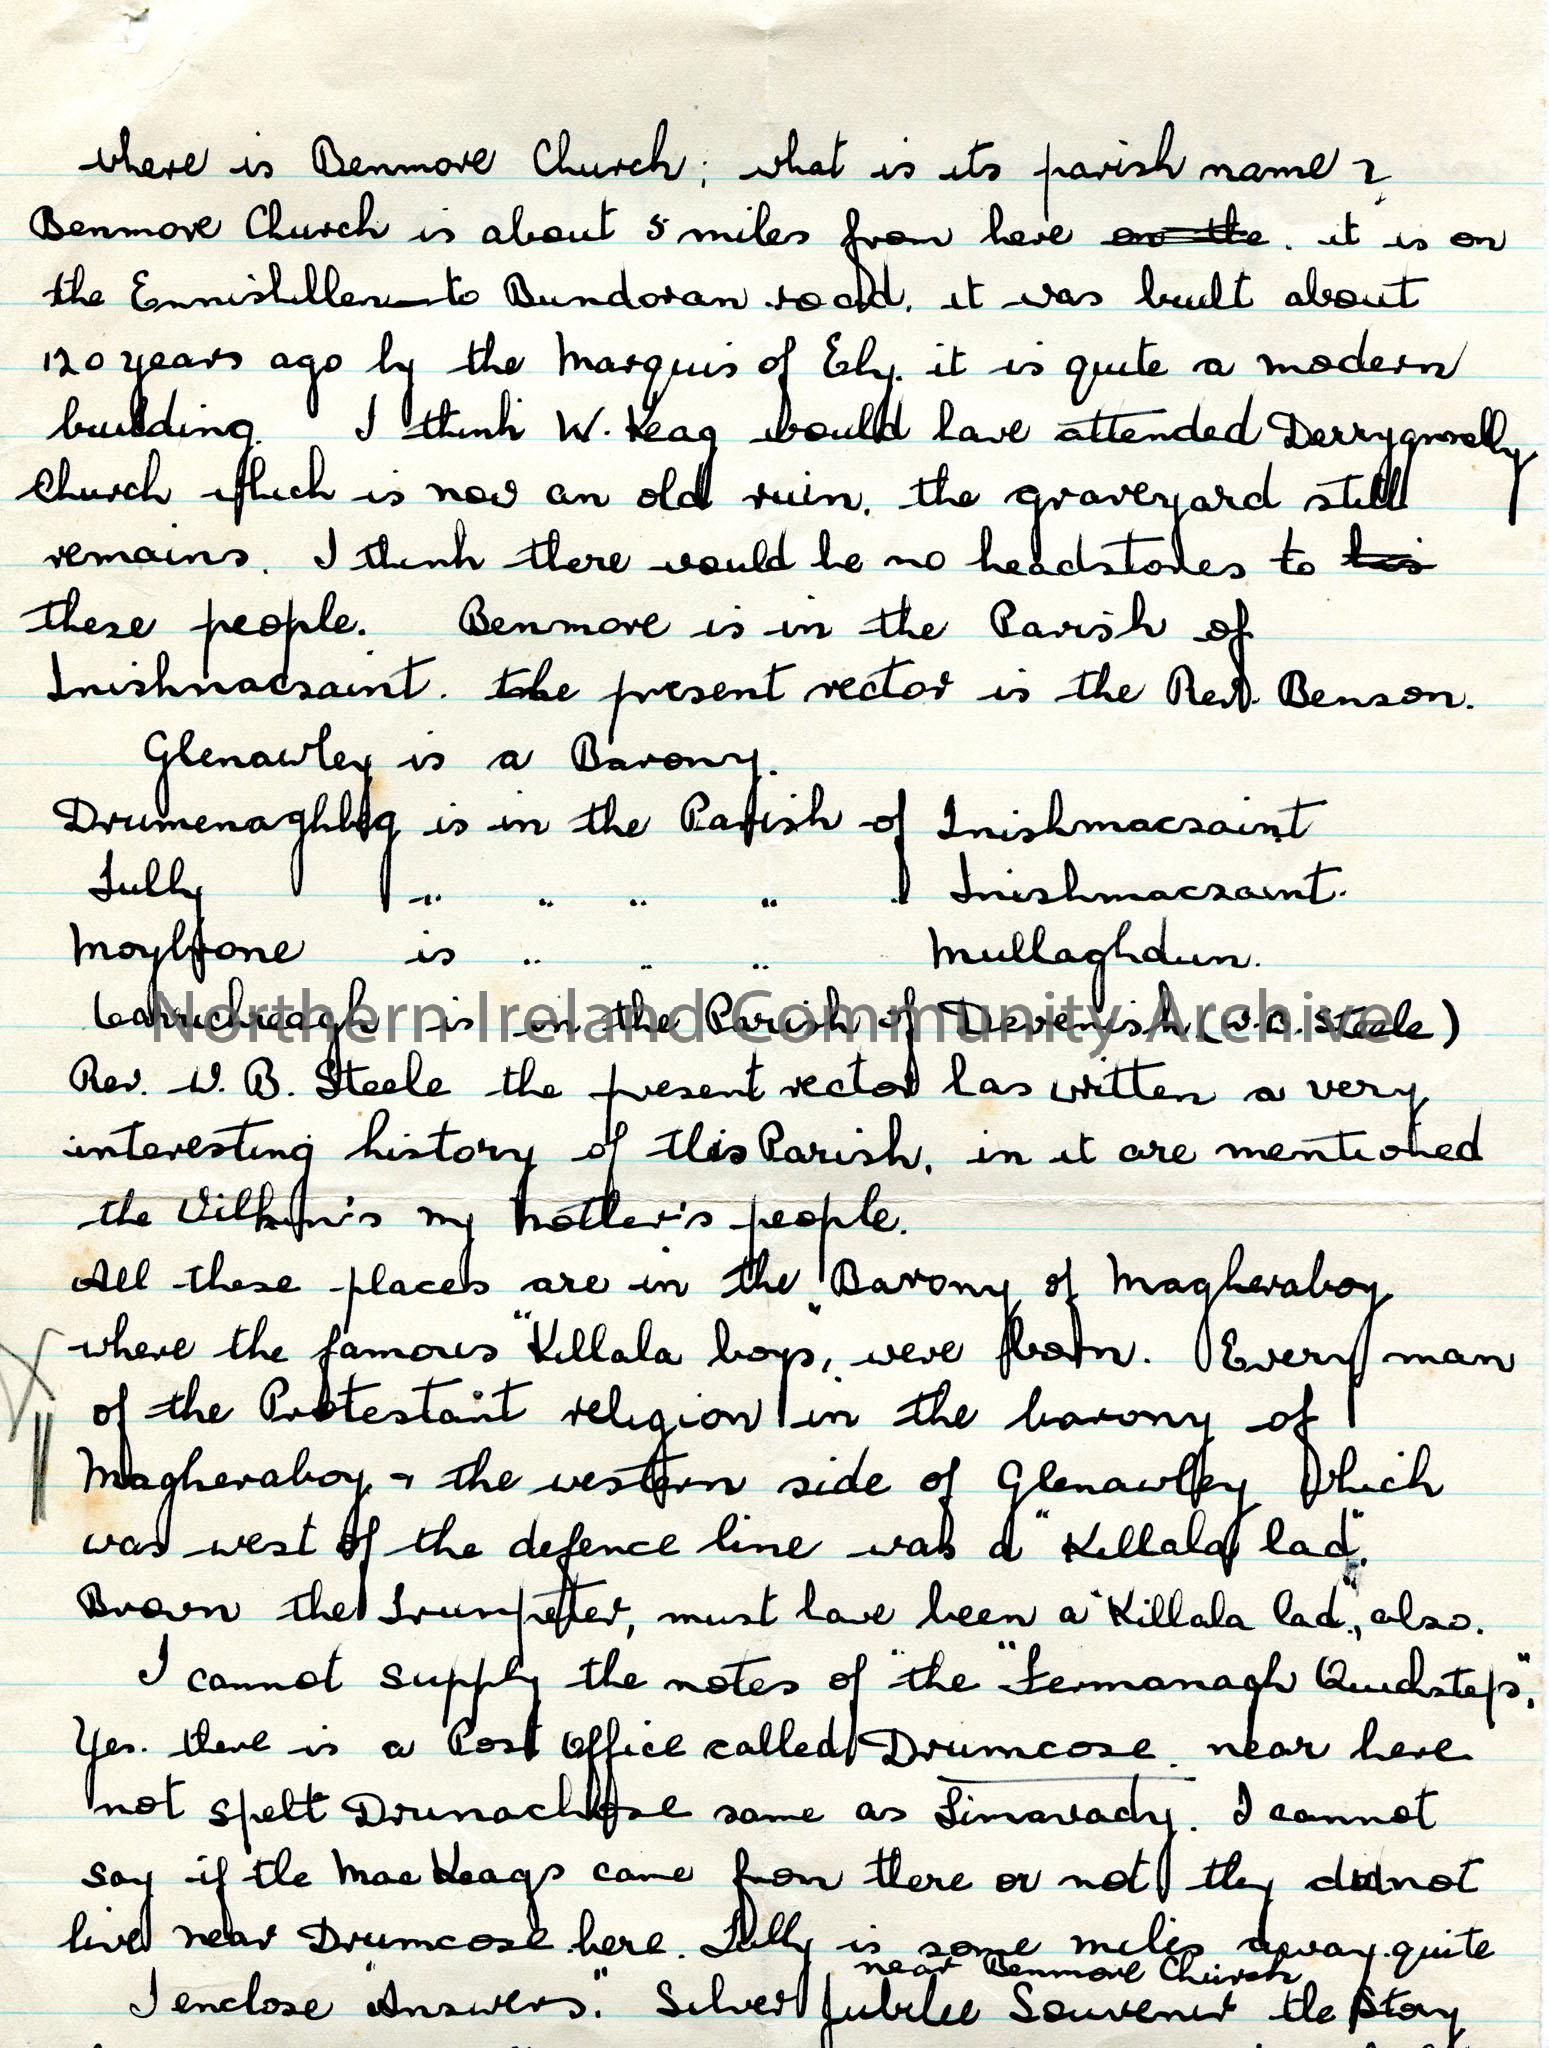 where is Benmore Church; what is its parish name?
Benmore Church is about 5 miles from here on the. it is on
the Enniskillen to Bundoran road. it was built about
120 years ago by the Marquis of Ely. it is quite a modern
building. I think W. Keag would have attended Derrygonnelly
Church which is now an old ruin. the graveyard still
remains. I think there would be no headstones to his
these people. Benmore is in the Parish of
Inishmacsaint. the present rector is the Rev. Benson.
Glenawley is a Barony.
Drumenaghbeg is in the Parish of Inishmacsaint
Tully " " " " Inishmacsaint.
is " " " Mullaghdun.
is in the Parish of Devenish (W.B. Steele)
Northern Ireland Community Archive
Rev. W. B. Steele the present rector has written a very
interesting history of this Parish, in it are mentioned
the my mother's people.
All these places are in the Barony of Magheraboy
where the famous "Killala boys", were from. Every man
of the Protestant religion in the barony of
Magheraboy & the western side of Glenawley which
was west of the defence line was a "Killala lad".
Brown the Trumpeter, must have been a "Killala lad", also.
I cannot supply the notes of "the "Fermanagh Quicksteps".
Yes. there is a Post Office called Drumcose. near here
not spelt Drumachose same as Limavady. I cannot
say if the MacKeags came from there or not they did not
live near Drumcose here. Tully is some miles away. quite
near Benmore Church
I enclose "Answers." Silver Jubilee Souvenir the Story